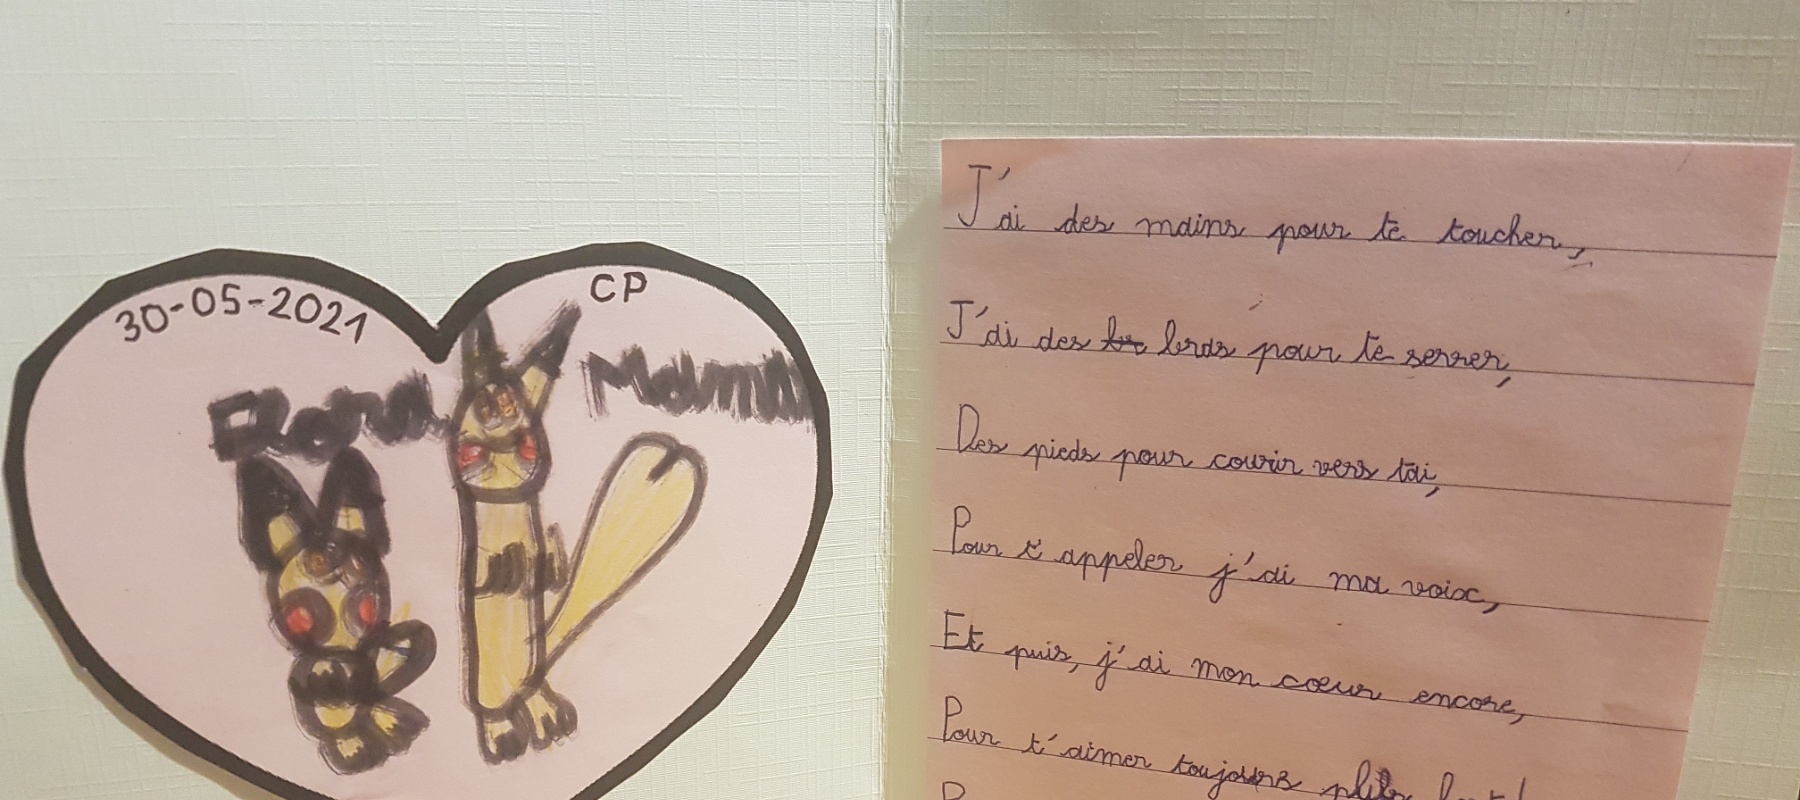 30-05-2021
CP
Mama
J'ai des mains pour te toucher,
J'ai des bras pour te serrer,
Des pieds pour courir vers tai,
Pour t'appeler j'ai ma voix,
Et puis, j'ai mon cœur encore,
Pour t'aimer toujours plus